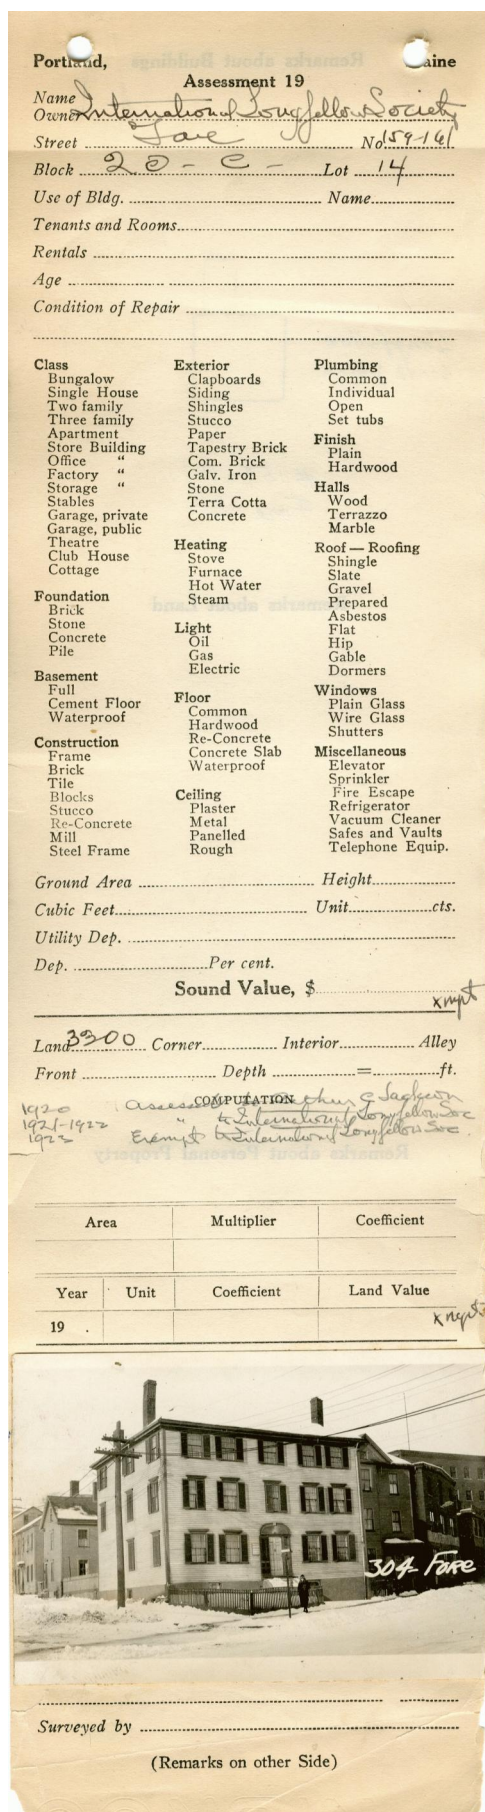 Portland, Maine
Assessment 19
Name
Owner International Longfellow Society
Street Fore No 159-161
Block 20 - C - Lot 14
Use of Bldg. Name
Tenants and Rooms
Rentals
Age
Condition of Repair
Class
Bungalow
Single House
Two family
Three family
Apartment
Store Building
Office "
Factory "
Storage "
Stables
Garage, private
Garage, public
Theatre
Club House
Cottage
Foundation
Brick
Stone
Concrete
Pile
Basement
Full
Cement Floor
Waterproof
Construction
Frame
Brick
Tile
Blocks
Stucco
Re-Concrete
Mill
Steel Frame
Exterior
Clapboards
Siding
Shingles
Stucco
Paper
Tapestry Brick
Com. Brick
Galv. Iron
Stone
Terra Cotta
Concrete
Heating
Stove
Furnace
Hot Water
Steam
Light
Oil
Gas
Electric
Floor
Common
Hardwood
Re-Concrete
Concrete Slab
Waterproof
Ceiling
Plaster
Metal
Panelled
Rough
Plumbing
Common
Individual
Open
Set tubs
Finish
Plain
Hardwood
Halls
Wood
Terrazzo
Marble
Roof — Roofing
Shingle
Slate
Gravel
Prepared
Asbestos
Flat
Hip
Gable
Dormers
Windows
Plain Glass
Wire Glass
Shutters
Miscellaneous
Elevator
Sprinkler
Fire Escape
Refrigerator
Vacuum Cleaner
Safes and Vaults
Telephone Equip.
Ground Area Height
Cubic Feet Unit cts.
Utility Dep.
Dep. Per cent.
Sound Value, $
xmpt
Land 3300 Corner Interior Alley
Front Depth = ft.
COMPUTATION
1920 Assessed to Arthur C Jackson
1921-1922 " to International Longfellow Soc
1923 Exempt to International Longfellow Soc
Area Multiplier Coefficient
Year Unit Coefficient Land Value
19 . xmpt
304- FORE
Surveyed by
(Remarks on other Side)